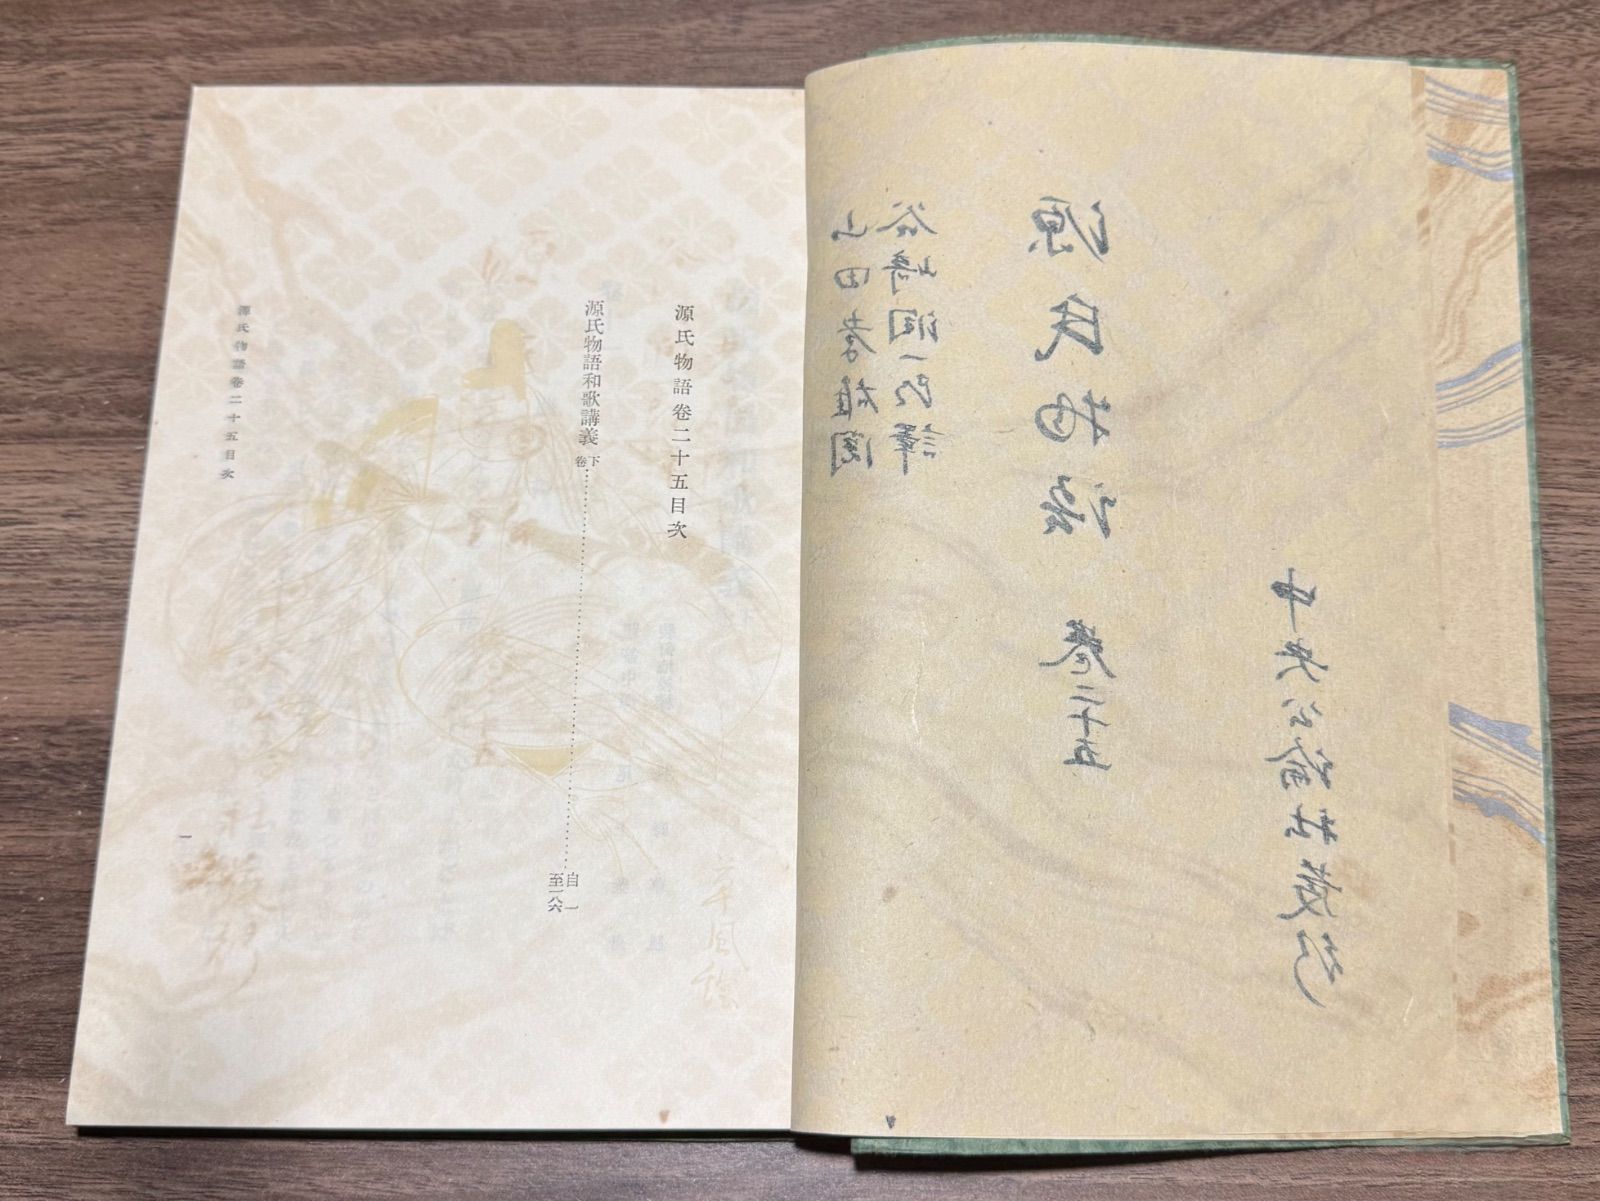 中央公論社發行
源氏物語 卷二十五
谷崎潤一郎譯
山田孝雄閲
源氏物語卷二十五目次
源氏物語和歌講義 下卷…………自一至一八六
源氏物語卷二十五目次
一